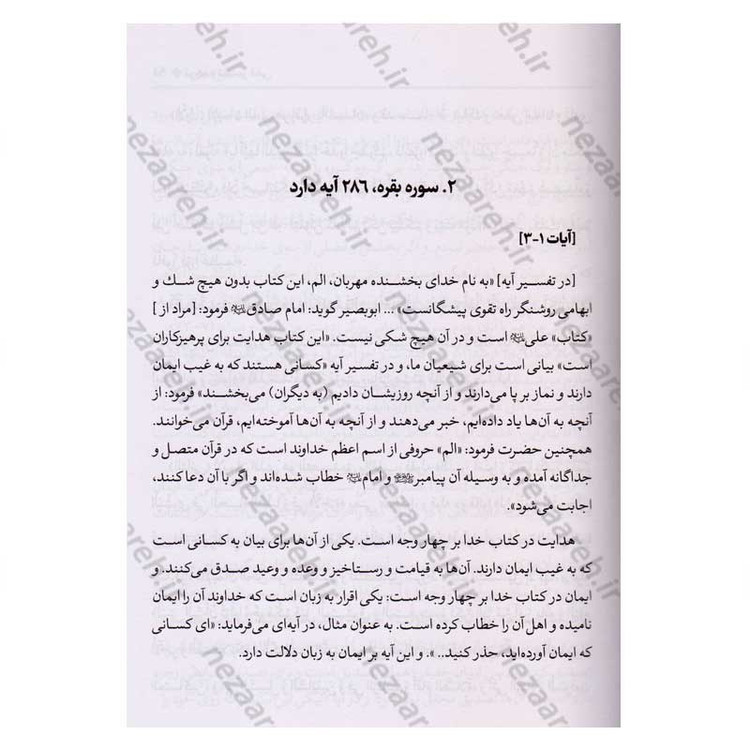 ۲. سوره بقره، ۲۸۶ آیه دارد
[آیات ۱-۳]
[در تفسیر آیه] «به نام خدای بخشنده مهربان، الم، این کتاب بدون هیچ شك و
ابهامی روشنگر راه تقوی پیشگانست» ... ابوبصیر گوید: امام صادق فرمود: [مراد از]
«کتاب» علی است و در آن هیچ شکی نیست. «این کتاب هدایت برای پرهیزکاران
است» بیانی است برای شیعیان ما، و در تفسیر آیه «کسانی هستند که به غیب ایمان
دارند و نماز بر پا می‌دارند و از آنچه روزیشان دادیم (به دیگران) می‌بخشند» فرمود: از
آنچه به آن‌ها یاد داده‌ایم، خبر می‌دهند و از آنچه به آن‌ها آموخته‌ایم، قرآن می‌خوانند.
همچنین حضرت فرمود: «الم» حروفی از اسم اعظم خداوند است که در قرآن متصل و
جداگانه آمده و به وسیله آن پیامبر و امام خطاب شده‌اند و اگر با آن دعا کنند،
اجابت می‌شود».
هدایت در کتاب خدا بر چهار وجه است. یکی از آن‌ها برای بیان به کسانی است
که به غیب ایمان دارند. آن‌ها به قیامت و رستاخیز و وعده و وعید صدق می‌کنند. و
ایمان در کتاب خدا بر چهار وجه است: یکی اقرار به زبان است که خداوند آن را ایمان
نامیده و اهل آن را خطاب کرده است. به عنوان مثال، در آیه‌ای می‌فرماید: «ای کسانی
که ایمان آورده‌اید، حذر کنید.. ». و این آیه بر ایمان به زبان دلالت دارد.
nezaareh.ir